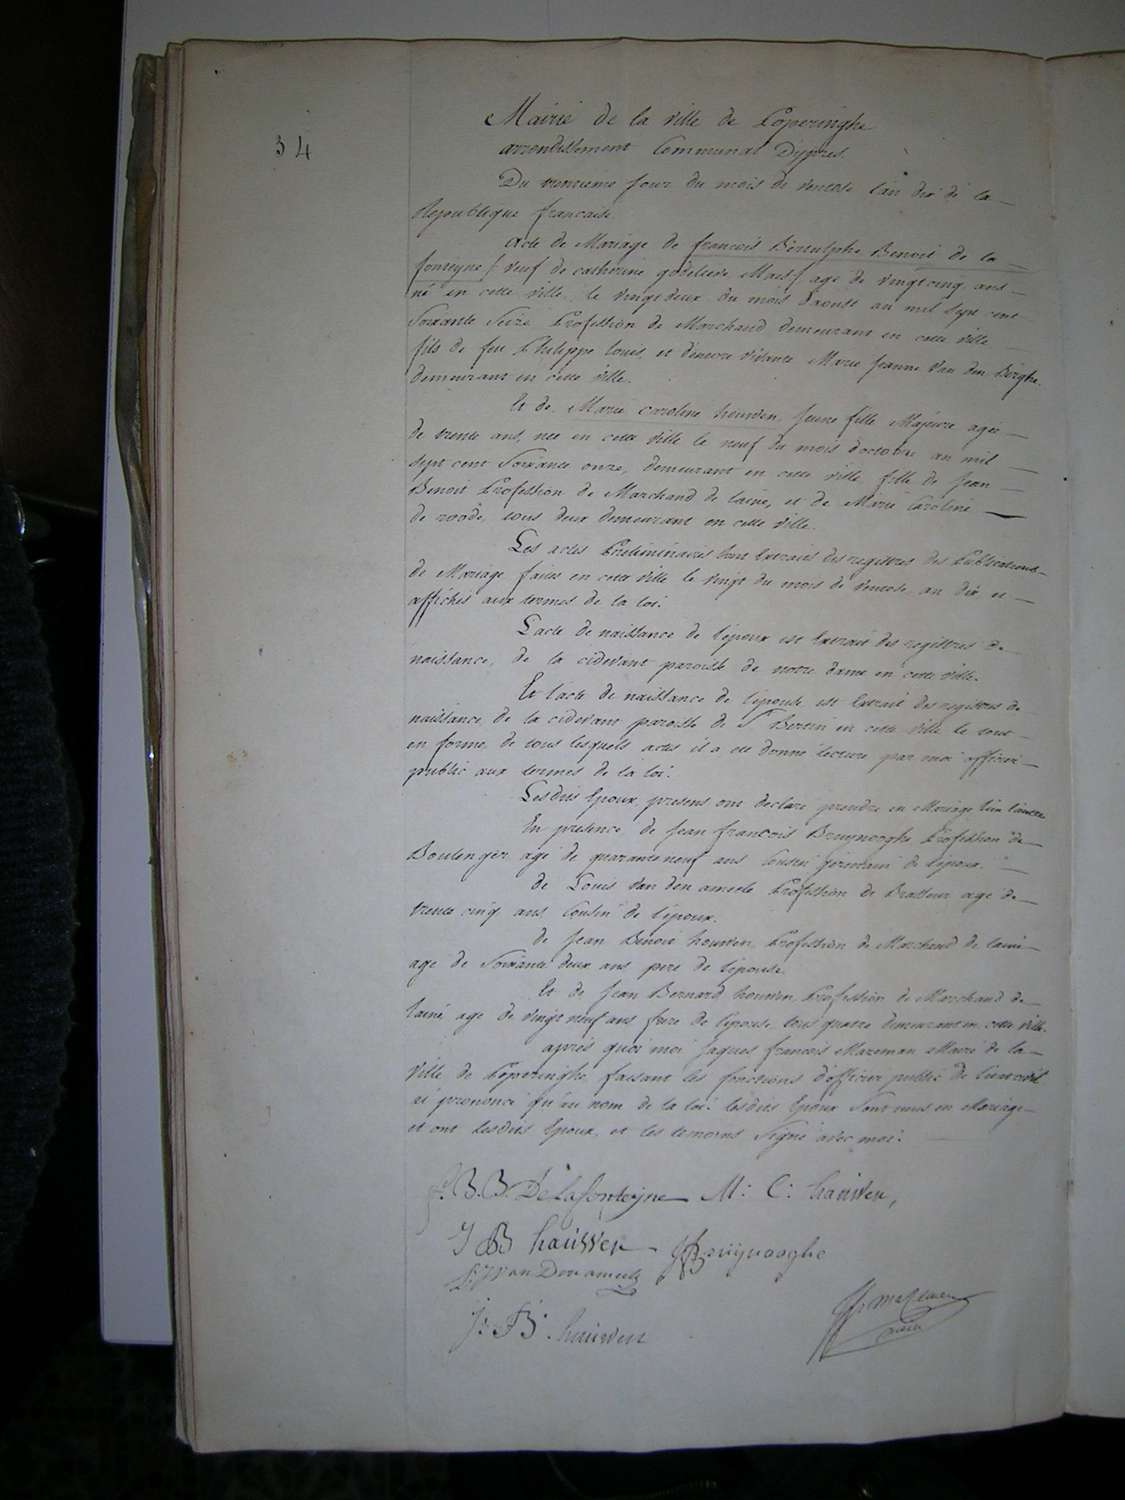 34
Mairie de la ville de Poperinghe
arrondissement Communal D'ypres.
Du trentieme jour du mois de ventose l'an dix de la
Republique francaise.
Acte de Mariage de francois Bertulphe Benoit de la
fonteyne / veuf de catherine godelieve Maes / agé de vingt cinq ans
né en cette ville, le vingt deux du mois d'aoust an mil sept cent
Soixante Seize Profession de Marchand demeurant en cette ville
fils de feu Philippe Louis, et d'encore vivante Marie Jeanne Van den Berghe
demeurant en cette ville.
Et de Marie Caroline houwen Jeune fille Majeure agée
de trente ans, née en cette ville le neuf du mois d'octobre an mil
sept cent Soixante onze, demeurant en cette ville, fille de Jean
Benoit Profession de Marchand de laine, et de Marie Caroline
de roode, tous deux demeurant en cette ville.
Les actes Preliminaires sont Extraits des registres des Publications
de Mariage faites en cette ville le vingt du mois de ventose, an dix et
affichés aux termes de la loi.
L'acte de naissance de l'epoux est Extrait des registres de
naissance, de la cidevant paroisse de notre dame en cette ville.
Et l'acte de naissance de l'epouse est Extrait des registres de
naissance, de la cidevant paroisse de St Bertin en cette ville le tout
en forme, de tous lesquels actes il a eté donné lecture par moi officier
public aux termes de la loi.
Lesdits Epoux presens ont declaré prendre en Mariage l'un l'autre
En presence, de Jean francois Bruynooghe Profession de
Boulenger agé de quarante neuf ans Cousin germain de l'epoux.
de Louis Van den ameele Profession de Brasseur agé de
trente cinq ans Cousin de l'epoux.
de Jean Benoit houwen Profession de Marchand de laine
agé de Soixante deux ans pere de l'epouse.
Et de Jean Bernard houwen Profession de Marchand de
laine, agé de vingt neuf ans frere de l'epouse, tous quatre demeurant en cette ville.
après quoi moi Jaques francois Mazeman Maire de la
ville de Poperinghe, faisant les fonctions d'officier public de l'etat civil
ai prononcé qu'au nom de la loi. lesdits Epoux Sont unis en Mariage
et ont Lesdits Epoux, et les temoins Signé avec moi.
f. B. B. De lafonteyne M: C: hauwen,
J B hauwen J f Bruynooghe
L: J Van Den ameele
J: B: hauwen
J f. mazeman
maire